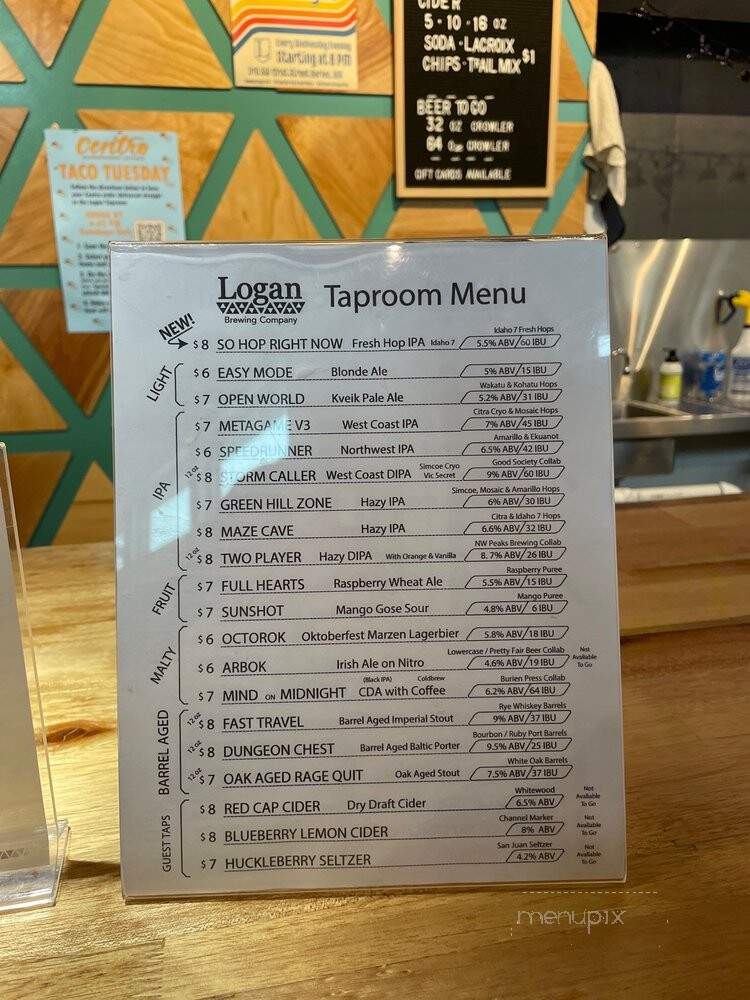 Every Wednesday Evening
Starting at 8 PM
CIDER
5 · 10 · 16 OZ
SODA · LACROIX
CHIPS · T*AIL MIX $1
BEER TO GO
32 OZ CROWLER
64 GROWLER
GIFT CARDS AVAILABLE
Centro
TACO TUESDAY
Logan
Brewing Company
Taproom Menu
NEW!
Idaho 7 Fresh Hops
$8 SO HOP RIGHT NOW Fresh Hop IPA Idaho 7 5.5% ABV/60 IBU
LIGHT
$6 EASY MODE Blonde Ale 5% ABV/15 IBU
Wakatu & Kohatu Hops
$7 OPEN WORLD Kveik Pale Ale 5.2% ABV/31 IBU
IPA
Citra Cryo & Mosaic Hops
$7 METAGAME V3 West Coast IPA 7% ABV/45 IBU
Amarillo & Ekuanot
$6 SPEEDRUNNER Northwest IPA 6.5% ABV/42 IBU
Good Society Collab
12 oz $8 STORM CALLER West Coast DIPA Simcoe Cryo Vic Secret 9% ABV/60 IBU
Simcoe, Mosaic & Amarillo Hops
$7 GREEN HILL ZONE Hazy IPA 6% ABV/30 IBU
Citra & Idaho 7 Hops
$8 MAZE CAVE Hazy IPA 6.6% ABV/32 IBU
NW Peaks Brewing Collab
12 oz $8 TWO PLAYER Hazy DIPA With Orange & Vanilla 8.7% ABV/26 IBU
FRUIT
Raspberry Puree
$7 FULL HEARTS Raspberry Wheat Ale 5.5% ABV/15 IBU
Mango Puree
$7 SUNSHOT Mango Gose Sour 4.8% ABV/ 6 IBU
MALTY
$6 OCTOROK Oktoberfest Marzen Lagerbier 5.8% ABV/18 IBU
Lowercase / Pretty Fair Beer Collab
$6 ARBOK Irish Ale on Nitro 4.6% ABV/19 IBU Not Available To Go
(Black IPA) Coldbrew Burien Press Collab
$7 MIND ON MIDNIGHT CDA with Coffee 6.2% ABV/64 IBU
BARREL AGED
Rye Whiskey Barrels
12 oz $8 FAST TRAVEL Barrel Aged Imperial Stout 9% ABV/37 IBU
Bourbon / Ruby Port Barrels
12 oz $8 DUNGEON CHEST Barrel Aged Baltic Porter 9.5% ABV/25 IBU
White Oak Barrels
12 oz $7 OAK AGED RAGE QUIT Oak Aged Stout 7.5% ABV/37 IBU
GUEST TAPS
Whitewood
$8 RED CAP CIDER Dry Draft Cider 6.5% ABV Not Available To Go
Channel Marker
$8 BLUEBERRY LEMON CIDER 8% ABV Not Available To Go
San Juan Seltzer
$7 HUCKLEBERRY SELTZER 4.2% ABV Not Available To Go
menupix